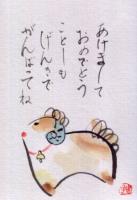 あけまして
おめでとう
ことしも
げんきで
がんばってね